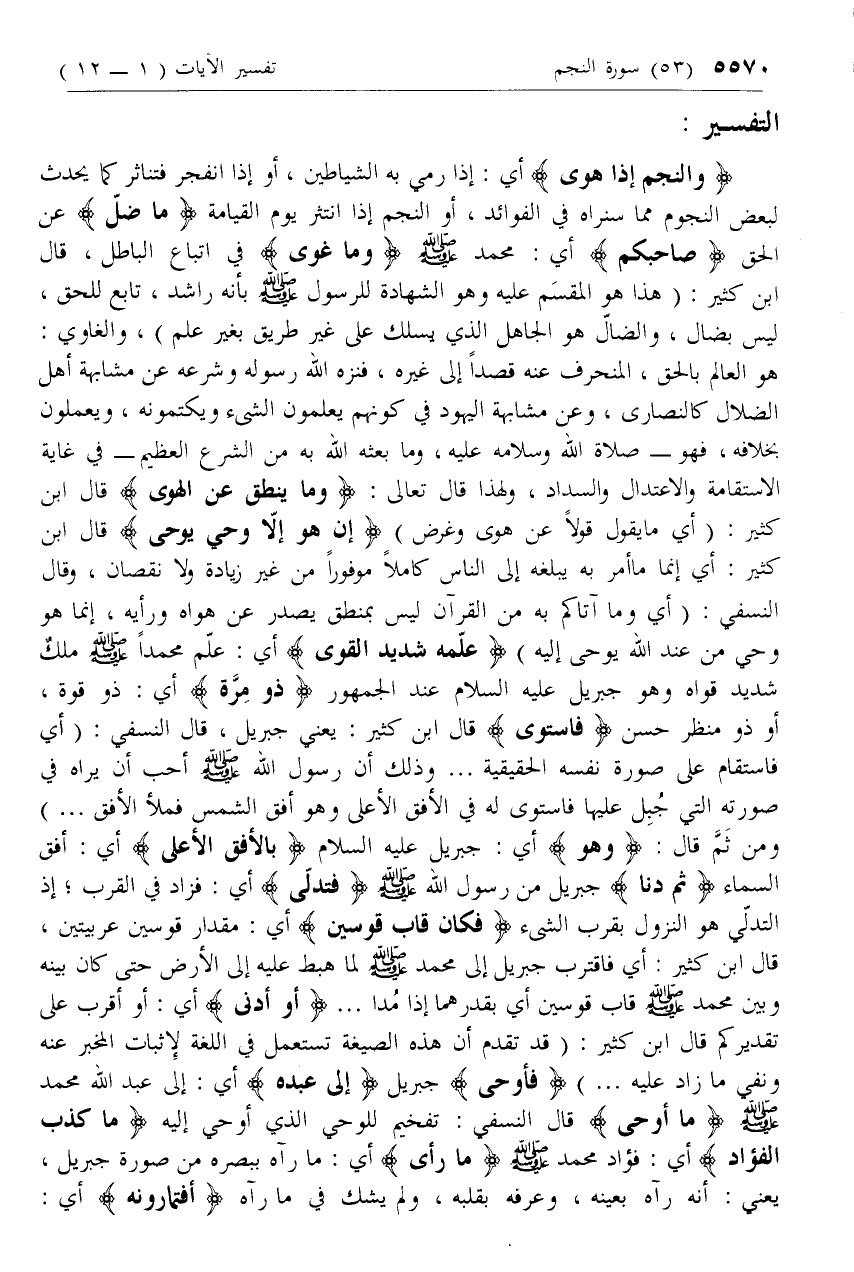 ٥٥٧٠ (٥٣) سورة النجم تفسير الآيات ( ١ — ١٢ )
التفسير :
﴿ والنجم إذا هوى ﴾ أي : إذا رمي به الشياطين ، أو إذا انفجر فتناثر كما يحدث
لبعض النجوم مما سنراه في الفوائد ، أو النجم إذا انتثر يوم القيامة ﴿ ما ضلّ ﴾ عن
الحق ﴿ صاحبكم ﴾ أي : محمد ﷺ ﴿ وما غوى ﴾ في اتباع الباطل ، قال
ابن كثير : ( هذا هو المقسَم عليه وهو الشهادة للرسول ﷺ بأنه راشد ، تابع للحق ،
ليس بضال ، والضالّ هو الجاهل الذي يسلك على غير طريق بغير علم ) ، والغاوي :
هو العالم بالحق ، المنحرف عنه قصداً إلى غيره ، فنزه الله رسوله وشرعه عن مشابهة أهل
الضلال كالنصارى ، وعن مشابهة اليهود في كونهم يعلمون الشىء ويكتمونه ، ويعملون
بخلافه ، فهو — صلاة الله وسلامه عليه ، وما بعثه الله به من الشرع العظيم — في غاية
الاستقامة والاعتدال والسداد ، ولهذا قال تعالى : ﴿ وما ينطق عن الهوى ﴾ قال ابن
كثير : ( أي مايقول قولاً عن هوى وغرض ) ﴿ إن هو إلّا وحي يوحى ﴾ قال ابن
كثير : أي إنما ماأمر به يبلغه إلى الناس كاملاً موفوراً من غير زيادة ولا نقصان ، وقال
النسفي : ( أي وما آتاكم به من القرآن ليس بمنطق يصدر عن هواه ورأيه ، إنما هو
وحي من عند الله يوحى إليه ) ﴿ علّمه شديد القوى ﴾ أي : علّم محمداً ﷺ ملكٌ
شديد قواه وهو جبريل عليه السلام عند الجمهور ﴿ ذو مِرَّة ﴾ أي : ذو قوة ،
أو ذو منظر حسن ﴿ فاستوى ﴾ قال ابن كثير : يعني جبريل ، قال النسفي : ( أي
فاستقام على صورة نفسه الحقيقية ... وذلك أن رسول الله ﷺ أحب أن يراه في
صورته التي جُبِل عليها فاستوى له في الأفق الأعلى وهو أفق الشمس فملأ الأفق ... )
ومن ثَمَّ قال : ﴿ وهو ﴾ أي : جبريل عليه السلام ﴿ بالأفق الأعلى ﴾ أي : أفق
السماء ﴿ ثم دنا ﴾ جبريل من رسول الله ﷺ ﴿ فتدلّى ﴾ أي : فزاد في القرب ؛ إذ
التدلّي هو النزول بقرب الشىء ﴿ فكان قاب قوسين ﴾ أي : مقدار قوسين عربيتين ،
قال ابن كثير : أي فاقترب جبريل إلى محمد ﷺ لما هبط عليه إلى الأرض حتى كان بينه
وبين محمد ﷺ قاب قوسين أي بقدرهما إذا مُدا ... ﴿ أو أدنى ﴾ أي : أو أقرب على
تقديركم قال ابن كثير : ( قد تقدم أن هذه الصيغة تستعمل في اللغة لإثبات المخبر عنه
ونفي ما زاد عليه ... ) ﴿ فأوحى ﴾ جبريل ﴿ إلى عبده ﴾ أي : إلى عبد الله محمد
ﷺ ﴿ ما أوحى ﴾ قال النسفي : تفخيم للوحي الذي أوحي إليه ﴿ ما كذب
الفؤاد ﴾ أي : فؤاد محمد ﷺ ﴿ ما رأى ﴾ أي : ما رآه ببصره من صورة جبريل ،
يعني : أنه رآه بعينه ، وعرفه بقلبه ، ولم يشك في ما رآه ﴿ أفتمارونه ﴾ أي :